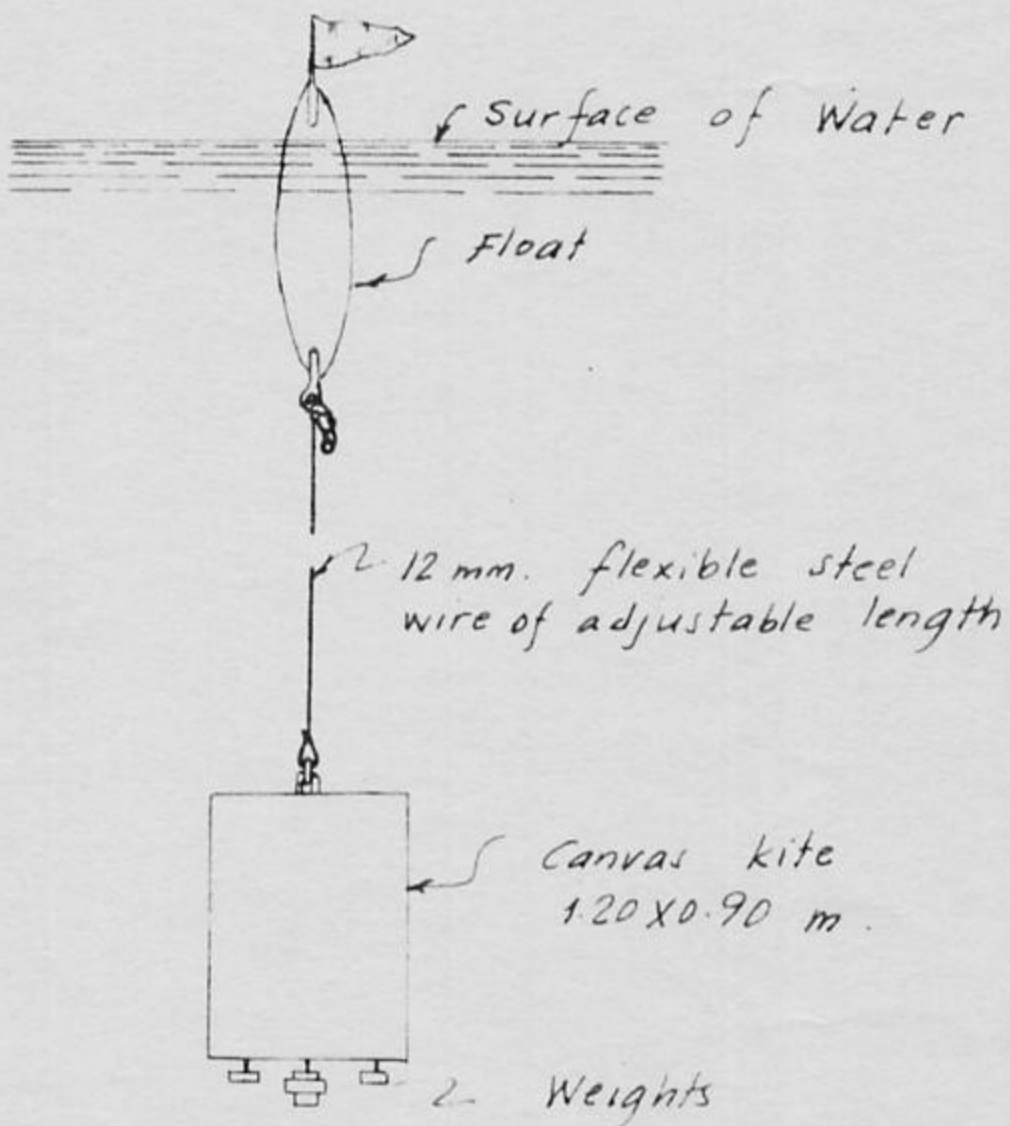 Surface of Water
Float
12 mm. flexible steel
wire of adjustable length
Canvas kite
1.20 X 0.90 m.
Weights